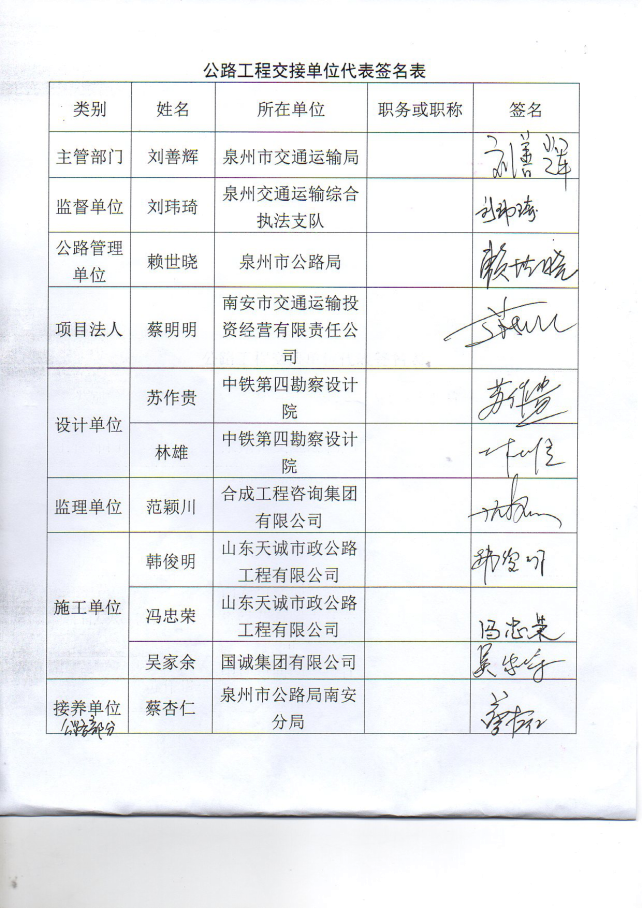 公路工程交接单位代表签名表
类别 姓名 所在单位 职务或职称 签名
主管部门 刘善辉 泉州市交通运输局 刘善辉
监督单位 刘玮琦 泉州交通运输综合
执法支队 刘玮琦
公路管理
单位 赖世晓 泉州市公路局 赖世晓
项目法人 蔡明明 南安市交通运输投
资经营有限责任公
司
设计单位 苏作贵 中铁第四勘察设计
院 苏作贵
林雄 中铁第四勘察设计
院 林雄
监理单位 范颖川 合成工程咨询集团
有限公司
施工单位 韩俊明 山东天诚市政公路
工程有限公司 韩俊明
冯忠荣 山东天诚市政公路
工程有限公司 冯忠荣
吴家余 国诚集团有限公司 吴家余
接养单位 蔡杏仁 泉州市公路局南安
分局 蔡杏仁
公路部分